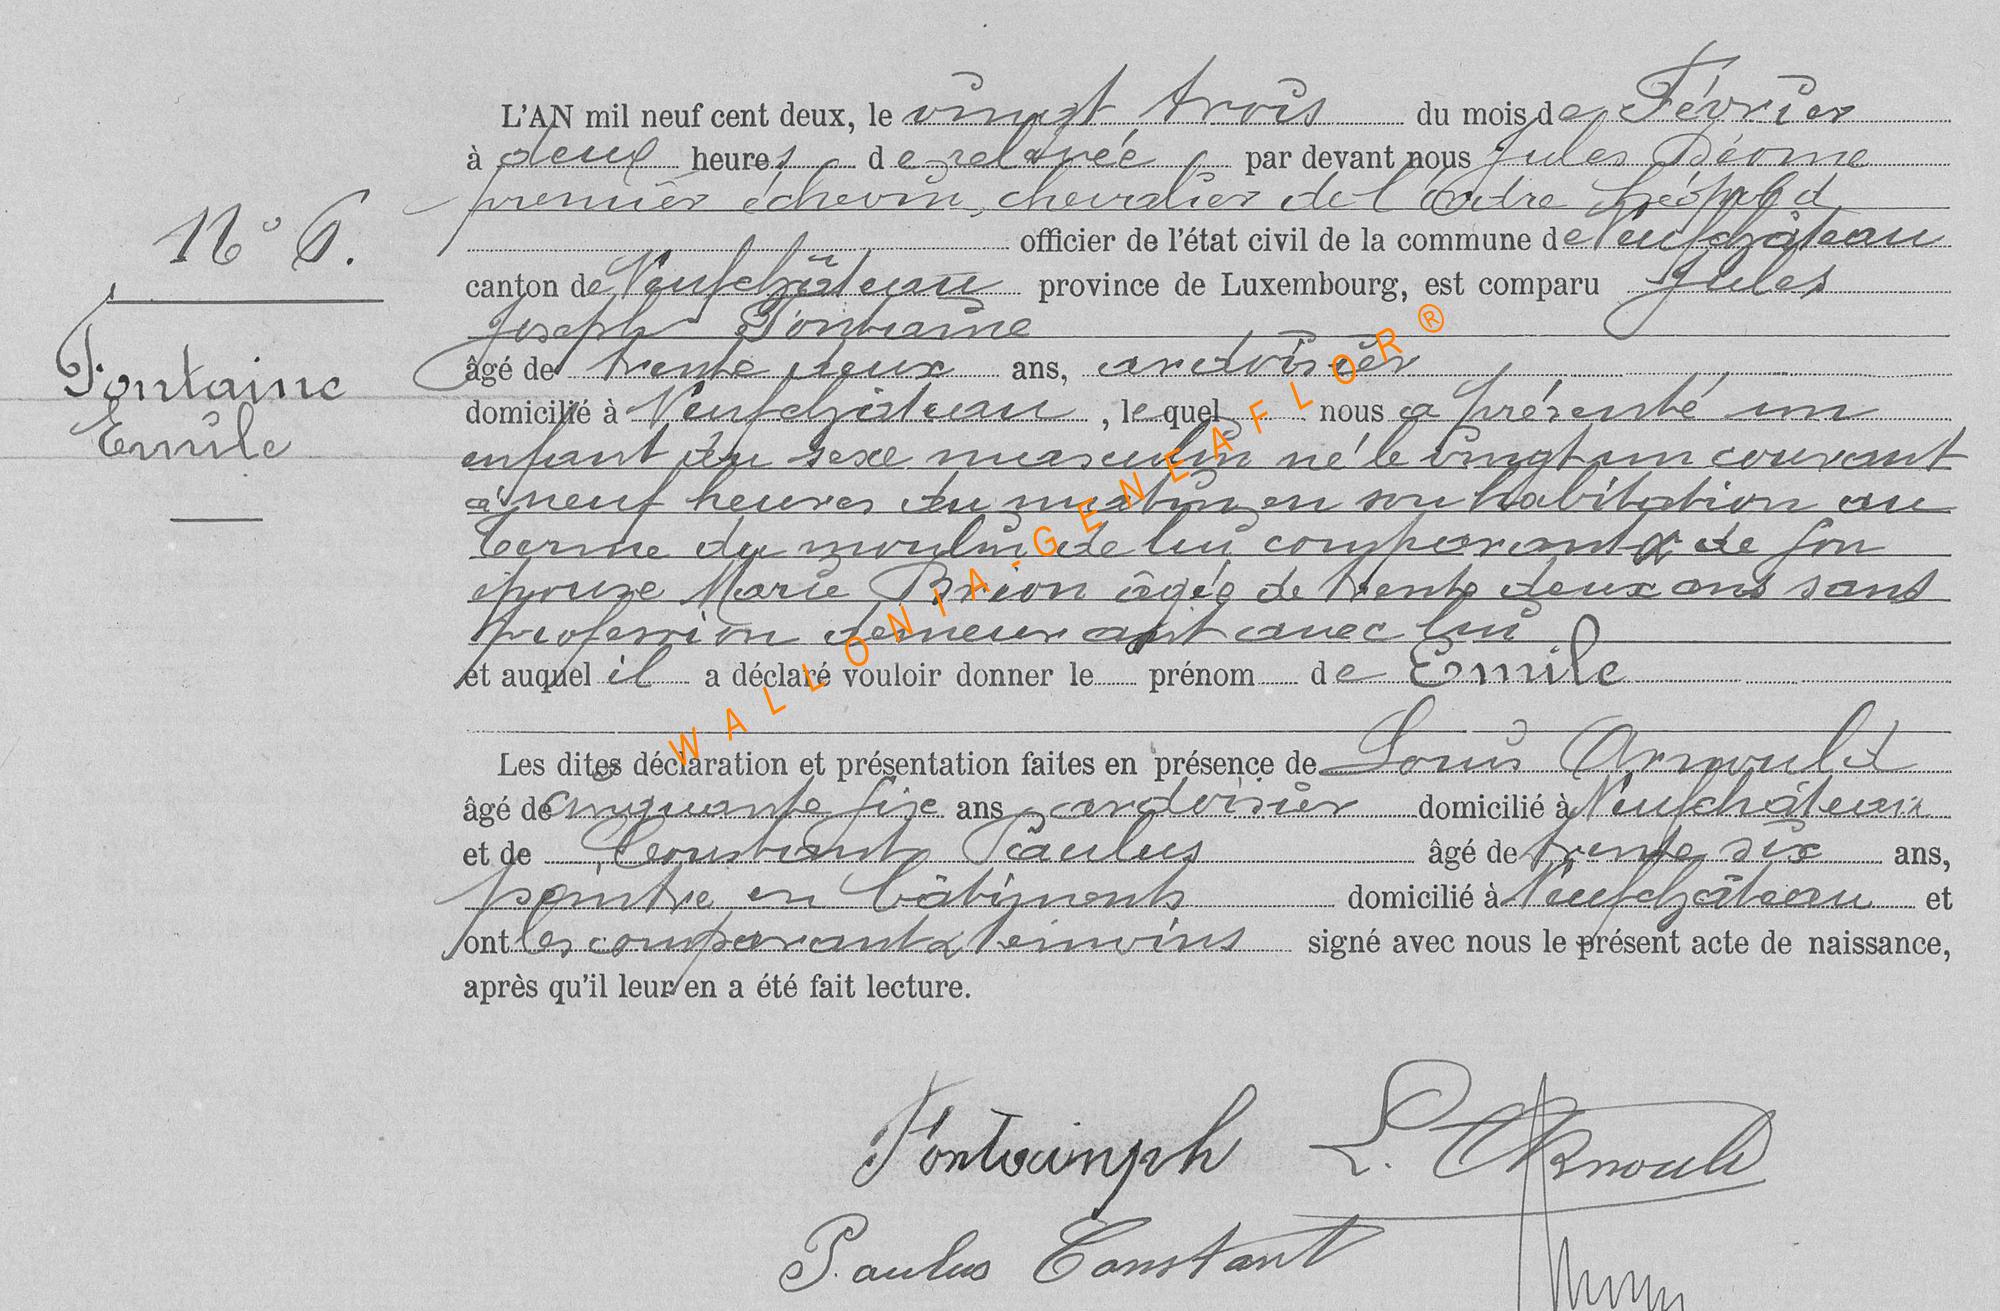 L'AN mil neuf cent deux, le vingt trois du mois de Février
à deux heures de relevée, par devant nous Jules
premier échevin, chevalier de l'Ordre Léopold
officier de l'état civil de la commune de Neufchâteau
N° 6.
canton de Neufchâteau province de Luxembourg, est comparu Jules
Joseph Fontaine
Fontaine
Emile
âgé de trente deux ans, ardoisier
domicilié à Neufchâteau, lequel nous a présenté un
enfant du sexe masculin né le vingt un courant
à neuf heures du matin en son habitation au
terme du moulin de lui comparant & de son
épouse Marie Brion âgée de trente deux ans sans
profession demeurant avec lui
et auquel il a déclaré vouloir donner le prénom de Emile
Les dites déclaration et présentation faites en présence de Louis Arnould
âgé de cinquante six ans ardoisier domicilié à Neufchâteau
et de Constant Paulus âgé de trente six ans,
peintre en bâtiments domicilié à Neufchâteau et
ont les comparant & témoins signé avec nous le présent acte de naissance,
après qu'il leur en a été fait lecture.
L. Arnould
Paulus Constant
WALLONIA-GENEAFLOR®